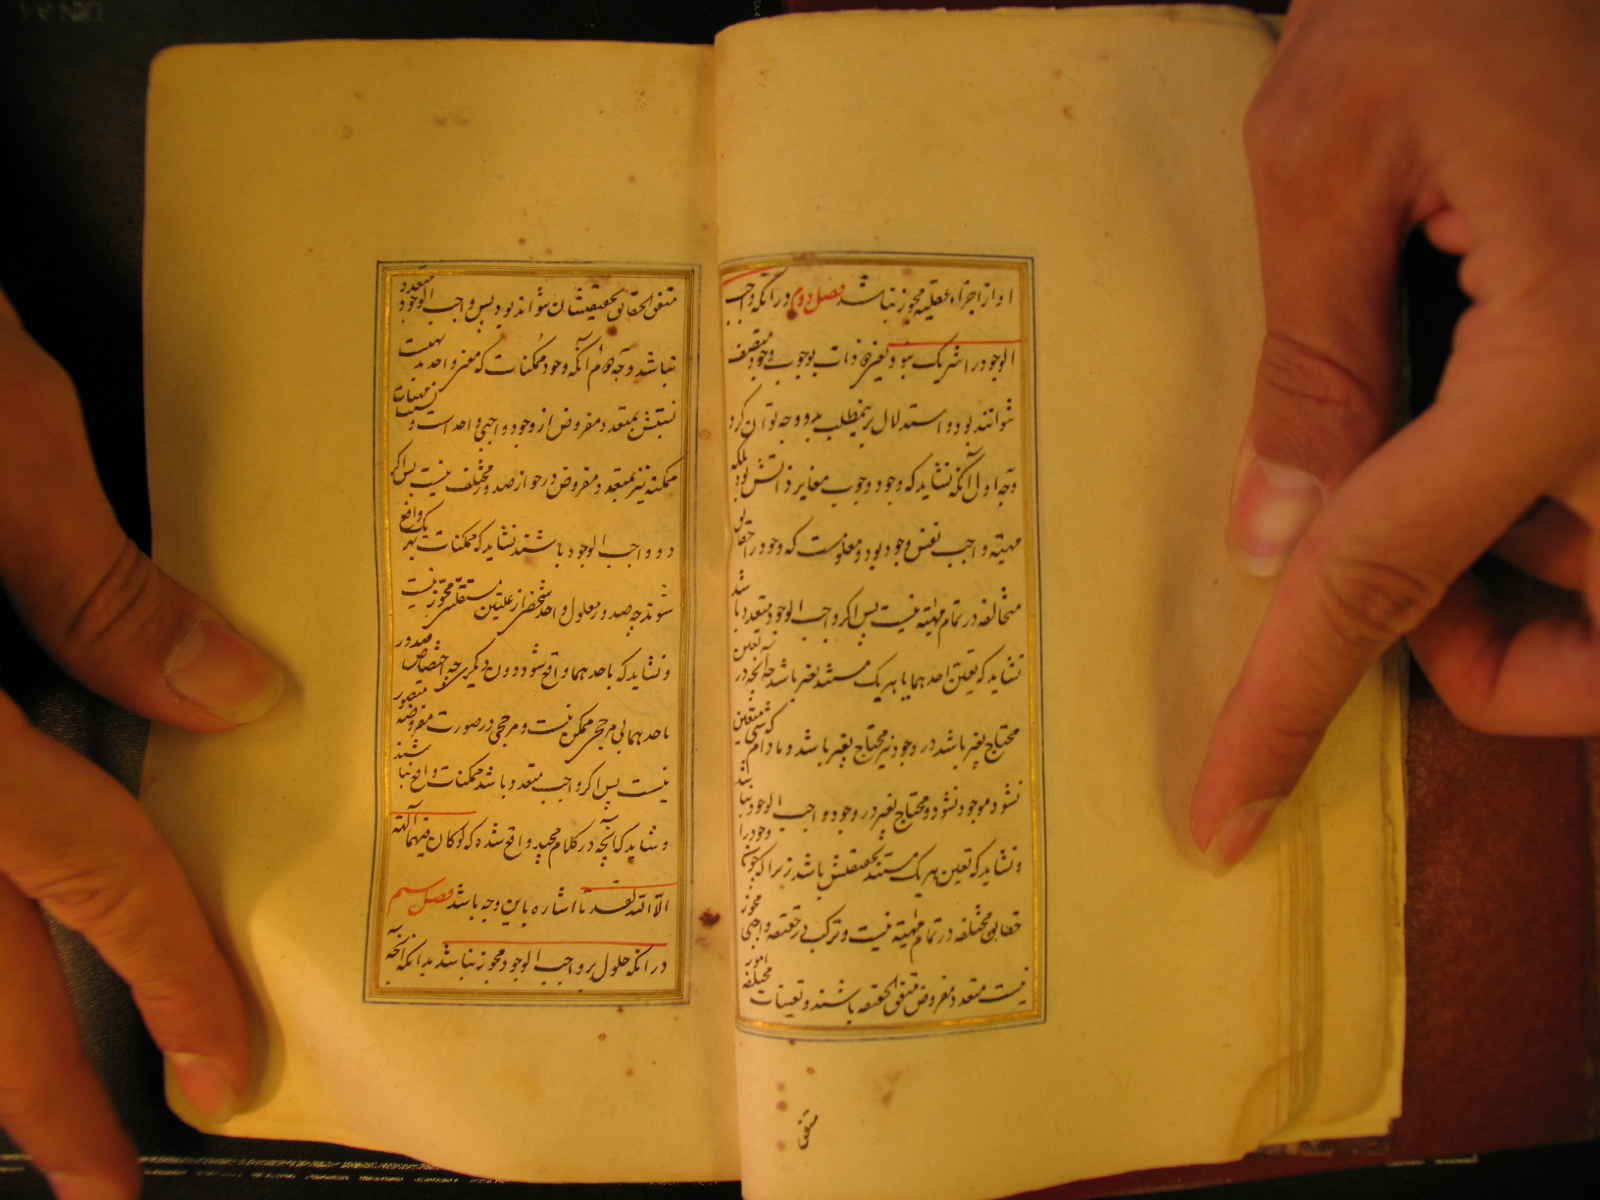 او از اجزاء عقلیه مجوز نباشد فصل دوم در آنکه واجب
الوجود را شریک نبود یعنی ذات بوجوب وجود متصف
نتوانند بود و استدلال برینمطلب بدو وجه توان کرد
وجه اول آنکه نشاید که وجود وجوب مغایر ذاتش بود بلکه
مهیته واجب نفس وجود بود و معلومست که وجود را حقایق
متخالفه در تمام مهیته نیست پس اگر واجب الوجود متعدد باشد
نشاید که تعین احدهما یا هر یک مستند بغیر باشد چه آنچه در تعین
محتاج بغیر باشد در وجود نیز محتاج بغیر باشد و مادام که شی متعین
نشود موجود نشود و محتاج بغیر در وجود واجب الوجود نباشد
و نشاید که تعین هر یک مستند بحقیقتش باشد زیرا که چون وجود را
حقایق مختلفه در تمام مهیته نیست و ترکب در حقیقه واجبی مجوز
نیست متعدد مفروض متفق الحقیقه باشند و تعینات امور مختلفه
متفق
متفق الحقایق بحقیقتشان نتواند بود پس واجب الوجود متعدد
نباشد وجه دوم آنکه وجود ممکنات که مغیر واحد بدیهیست
نسبتش بمتعدد مفروض از وجود واجبی واحد است و نسبت مهیات
ممکنه نیز بمتعدد مفروض در جواز صدور مختلف نیست پس اگر
دو واجب الوجود باشند نشاید که ممکنات بهر یک واقع
شوند چه صدور معلول واحد شخصی از علتین مستقلتین مجوز نیست
و نشاید که باحدهما واقع شود دون دیگری چه اختصاص صدور
باحدهما بی مرجحی ممکن نیست و مرجحی در صورت مفروضه متصور
نیست پس اگر واجب متعدد باشد ممکنات واقع نباشند
و شاید که آنچه در کلام مجید واقع شده که لو کان فیهما آلهة
الا الله لفسدتا اشاره باین وجه باشد فصل سیم
در آنکه حلول بر واجب الوجود مجوز نباشد بدانکه آنچه